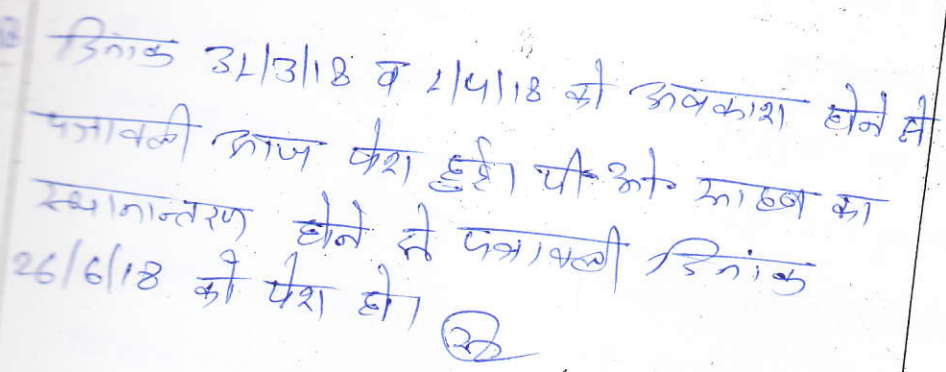 दिनांक 31/3/18 व 1/4/18 को अवकाश होने से
पत्रावली आज पेश हुई। पी० ओ० साहब का
स्थानान्तरण होने से पत्रावली दिनांक
26/6/18 को पेश हो।